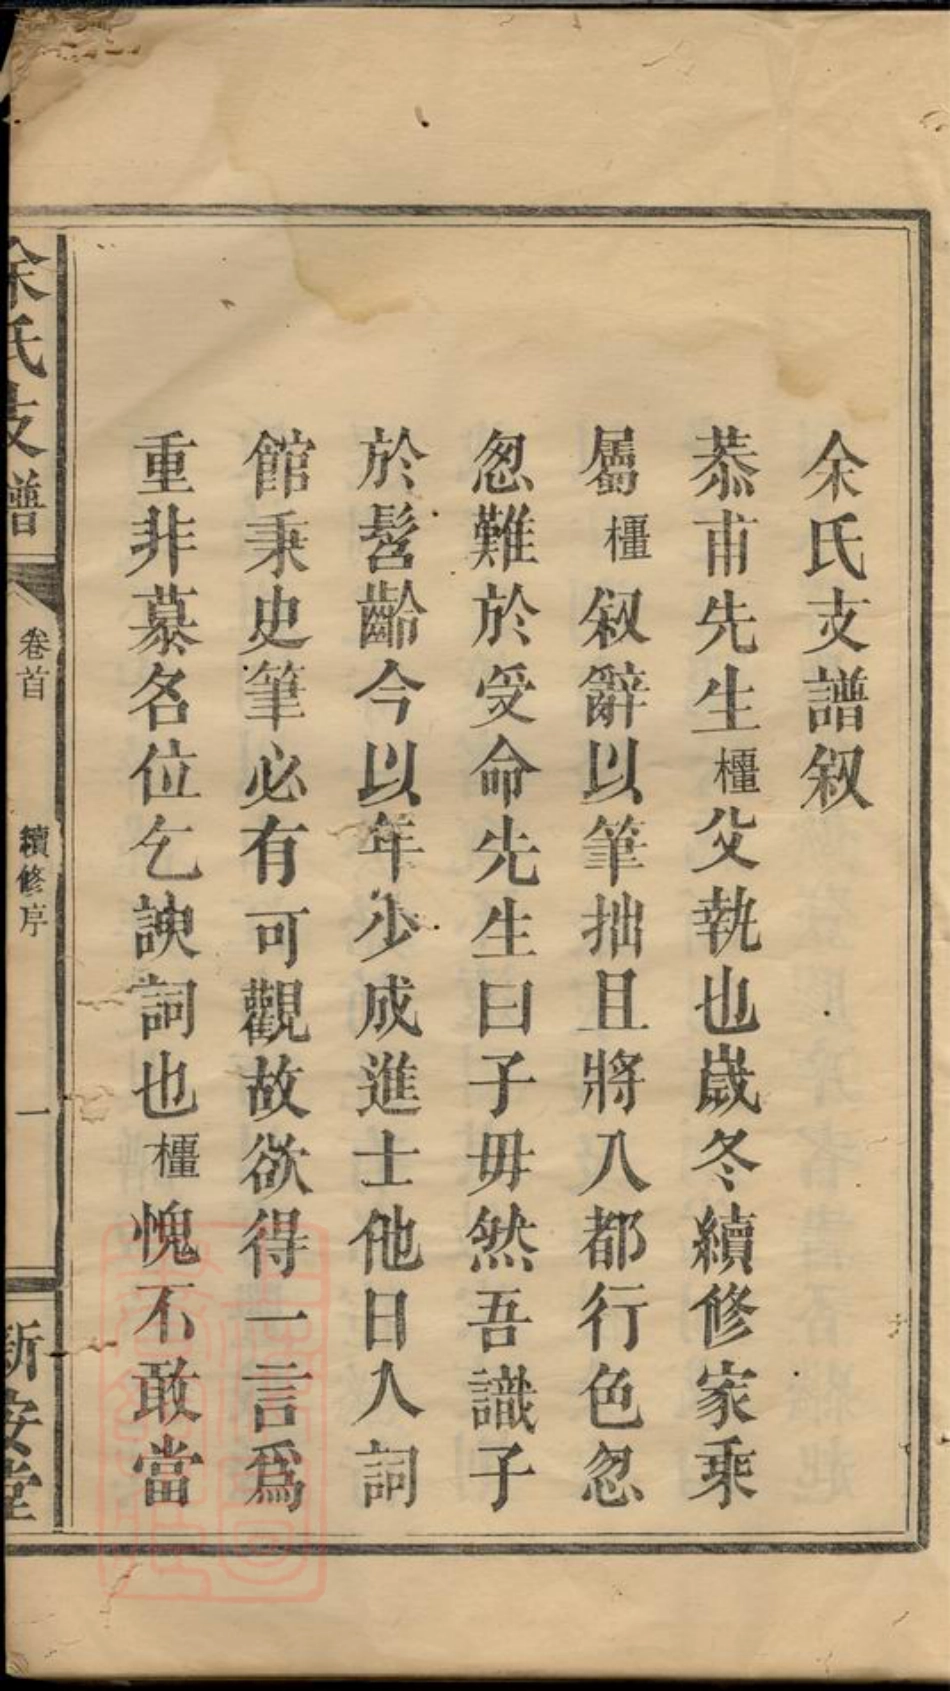 余氏支譜叙
恭甫先生櫃父執也歲冬續修家乘
屬櫃叙辭以筆拙且將入都行色忽
怱難於受命先生曰子毋然吾識子
於髫齡今以年少成進士他日入詞
館秉史筆必有可觀故欲得一言爲
重非慕名位乞諛詞也櫃愧不敢當
余氏支譜
卷首
續修序
一
新安堂